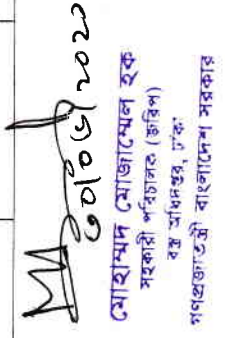 ৩০/০৬/২০২০
মোহাম্মদ মোজাম্মেল হক
সহকারী পরিচালক (জরিপ)
বস্ত্র অধিদপ্তর, ঢাকা
গণপ্রজাতন্ত্রী বাংলাদেশ সরকার